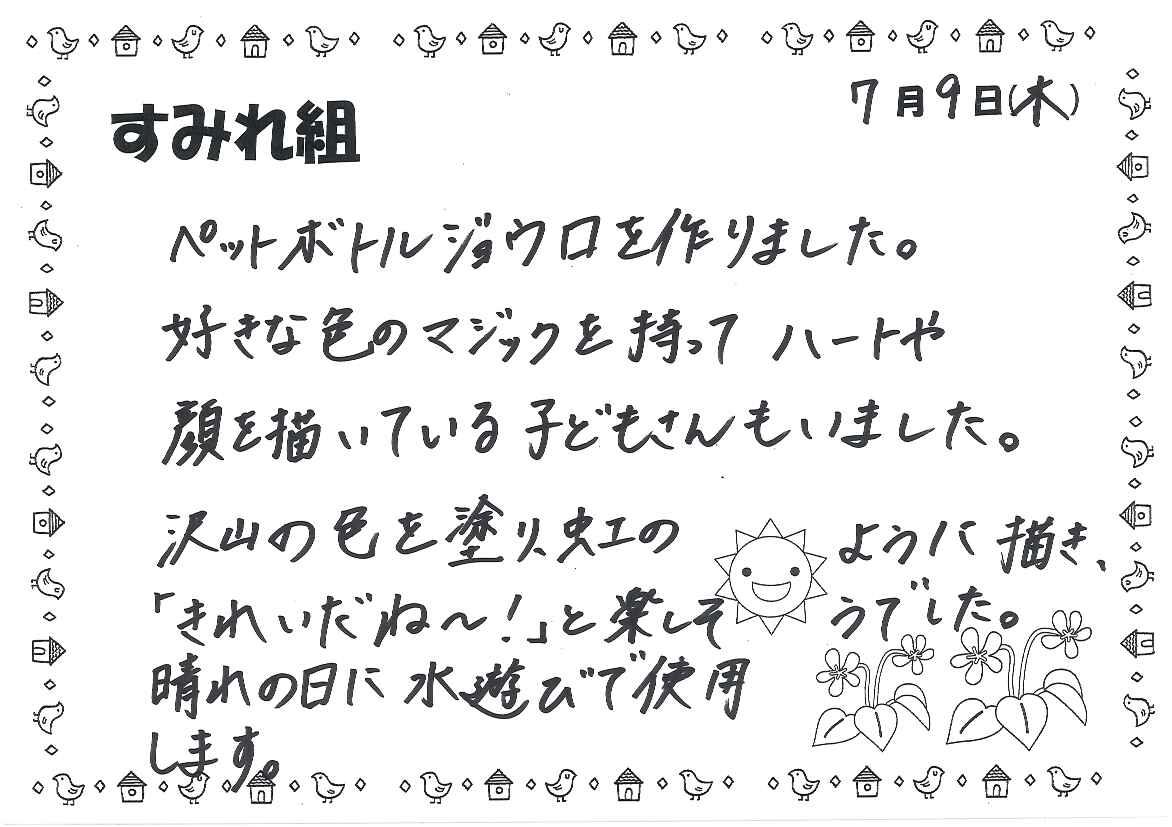 7月9日(木)
すみれ組
ペットボトルジョウロを作りました。
好きな色のマジックを持って ハートや
顔を描いている子どもさんもいました。
沢山の色を塗り、虹の ように描き、
「きれいだね〜!」と楽しそ うでした。
晴れの日に水遊びで使用
します。